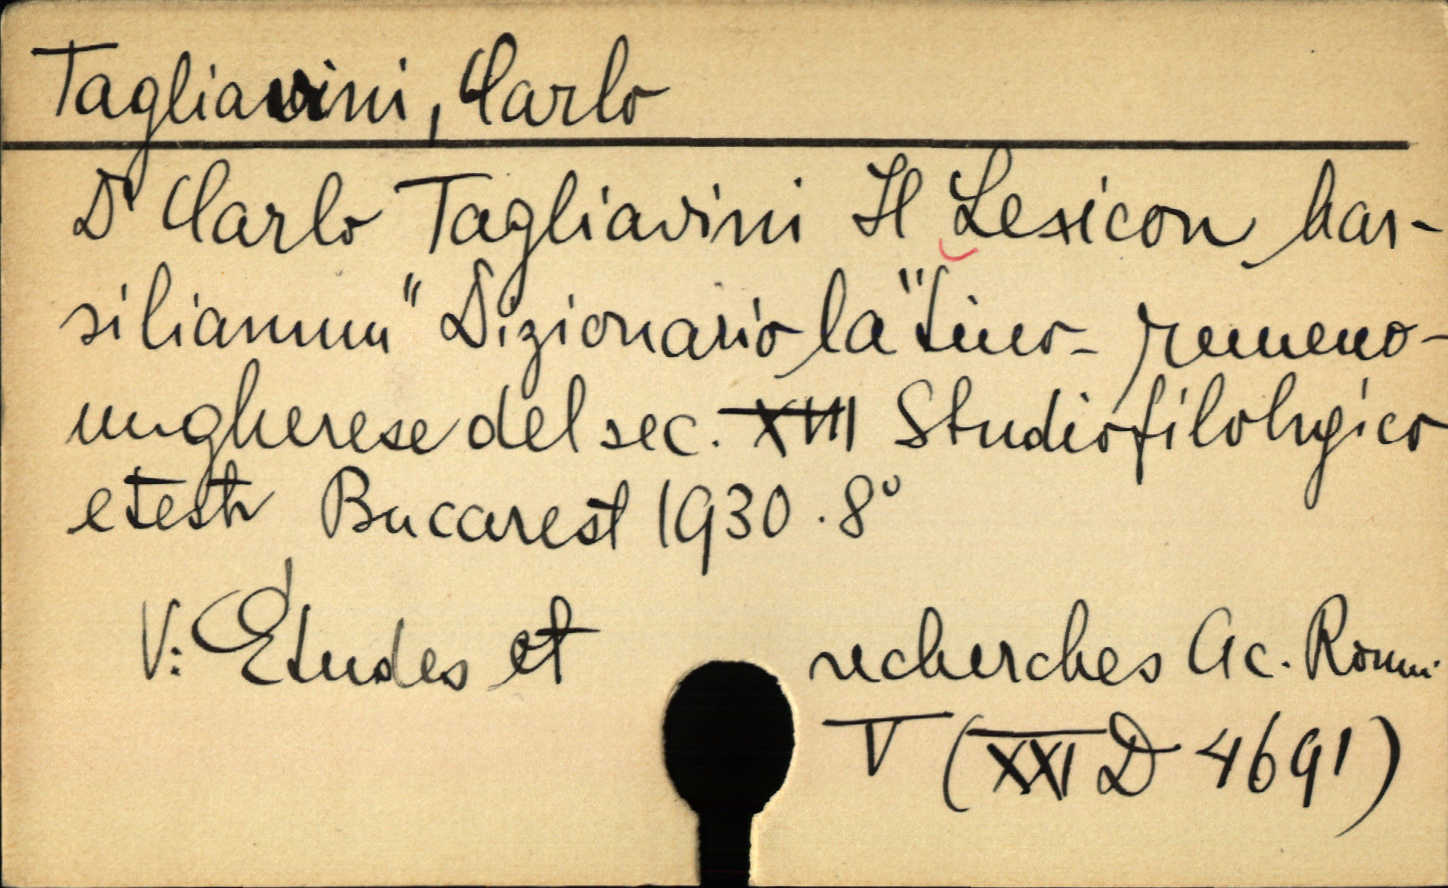 Tagliavini, Carlo
Dr Carlo Tagliavini Il Lexicon Mar-
silianum" Dizionario la"tino-rumeno-
ungherese del sec. XVII Studio filologico
e testi Bucarest 1930. 8°
V: Etudes et recherches Ac. Roum.
V (XXI D 4691)